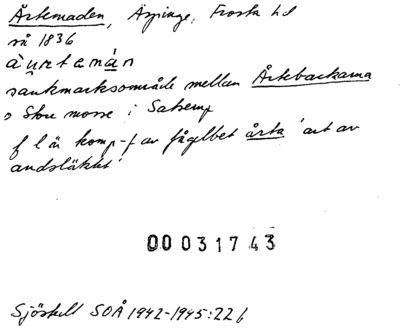 Årtemaden, Äspinge, Frosta hd
rå 1836
àu̯rtəmán
sankmarksområde mellan Årtebackarna
o Store mosse i Satserup
f l ä komp-f av fågelbet årta 'art av
andsläktet'
00031743
Sjöstedt SOÅ 1942-1945:22 f